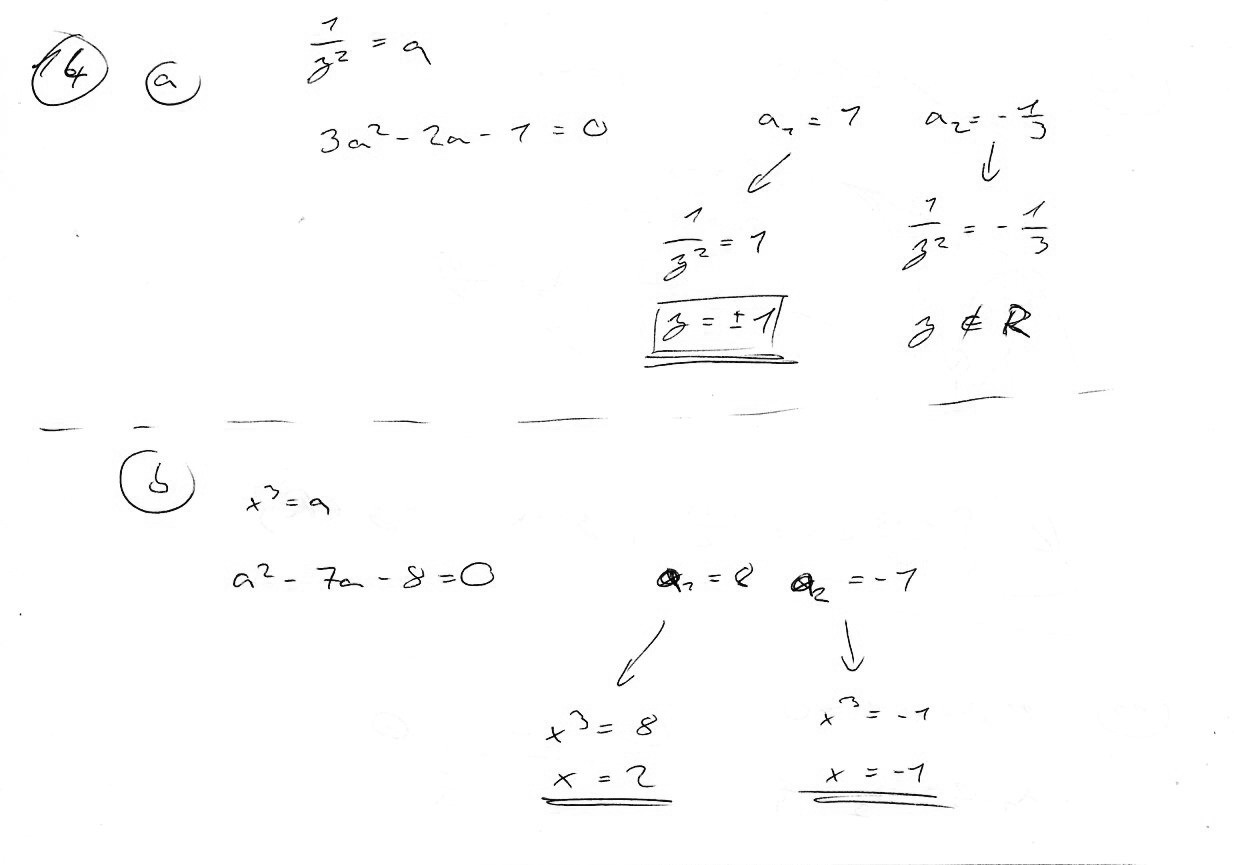 14 a 1/z² = a
3a² - 2a - 1 = 0 a₁ = 1 a₂ = -1/3
↙ ↓
1/z² = 1 1/z² = -1/3
z = ±1 z ∉ R
b
x³ = a
a² - 7a - 8 = 0 a₁ = 8 a₂ = -1
↙ ↓
x³ = 8 x³ = -1
x = 2 x = -1